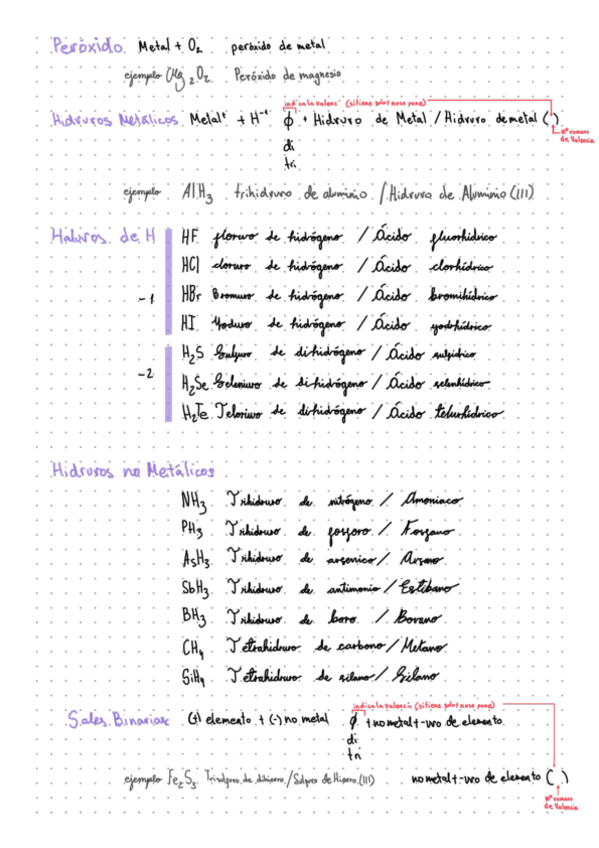 Peróxido Metal + O₂ peróxido de metal
ejemplo Mg₂O₂ Peróxido de magnesio
indica la valencia (si tiene solo 1 no se pone)
Hidruros Metálicos Metal⁺ + H⁻¹ ϕ + Hidruro de Metal / Hidruro de metal ( )
di
tri
Nº romano
de Valencia
ejemplo AlH₃ trihidruro de aluminio / Hidruro de Aluminio (III)
Haluros de H HF floruro de hidrógeno / Ácido fluorhídrico
HCl cloruro de hidrógeno / Ácido clorhídrico
-1 HBr Bromuro de hidrógeno / Ácido bromihídrico
HI Yoduro de hidrógeno / Ácido yodhídrico
H₂S Sulfuro de dihidrógeno / Ácido sulfídrico
-2 H₂Se Seleniuro de dihidrógeno / Ácido selenhídrico
H₂Te Teloriuro de dihidrógeno / Ácido telurhídrico
Hidruros no Metálicos
NH₃ Trihidruro de nitrógeno / Amoniaco
PH₃ Trihidruro de fosforo / Fosfano
AsH₃ Trihidruro de arsenico / Arsano
SbH₃ Trihidruro de antimonio / Estibano
BH₃ Trihidruro de boro / Borano
CH₄ Tetrahidruro de carbono / Metano
SiH₄ Tetrahidruro de silano / Silano
indica la valencia (si tiene solo 1 no se pone)
Sales Binarias (+) elemento + (-) no metal ϕ + no metal + -uro de elemento
di
tri
ejemplo Fe₂S₃ Trisulfuro de dihierro / Sulfuro de Hierro (III) no metal + -uro de elemento ( )
Nº romano
de Valencia